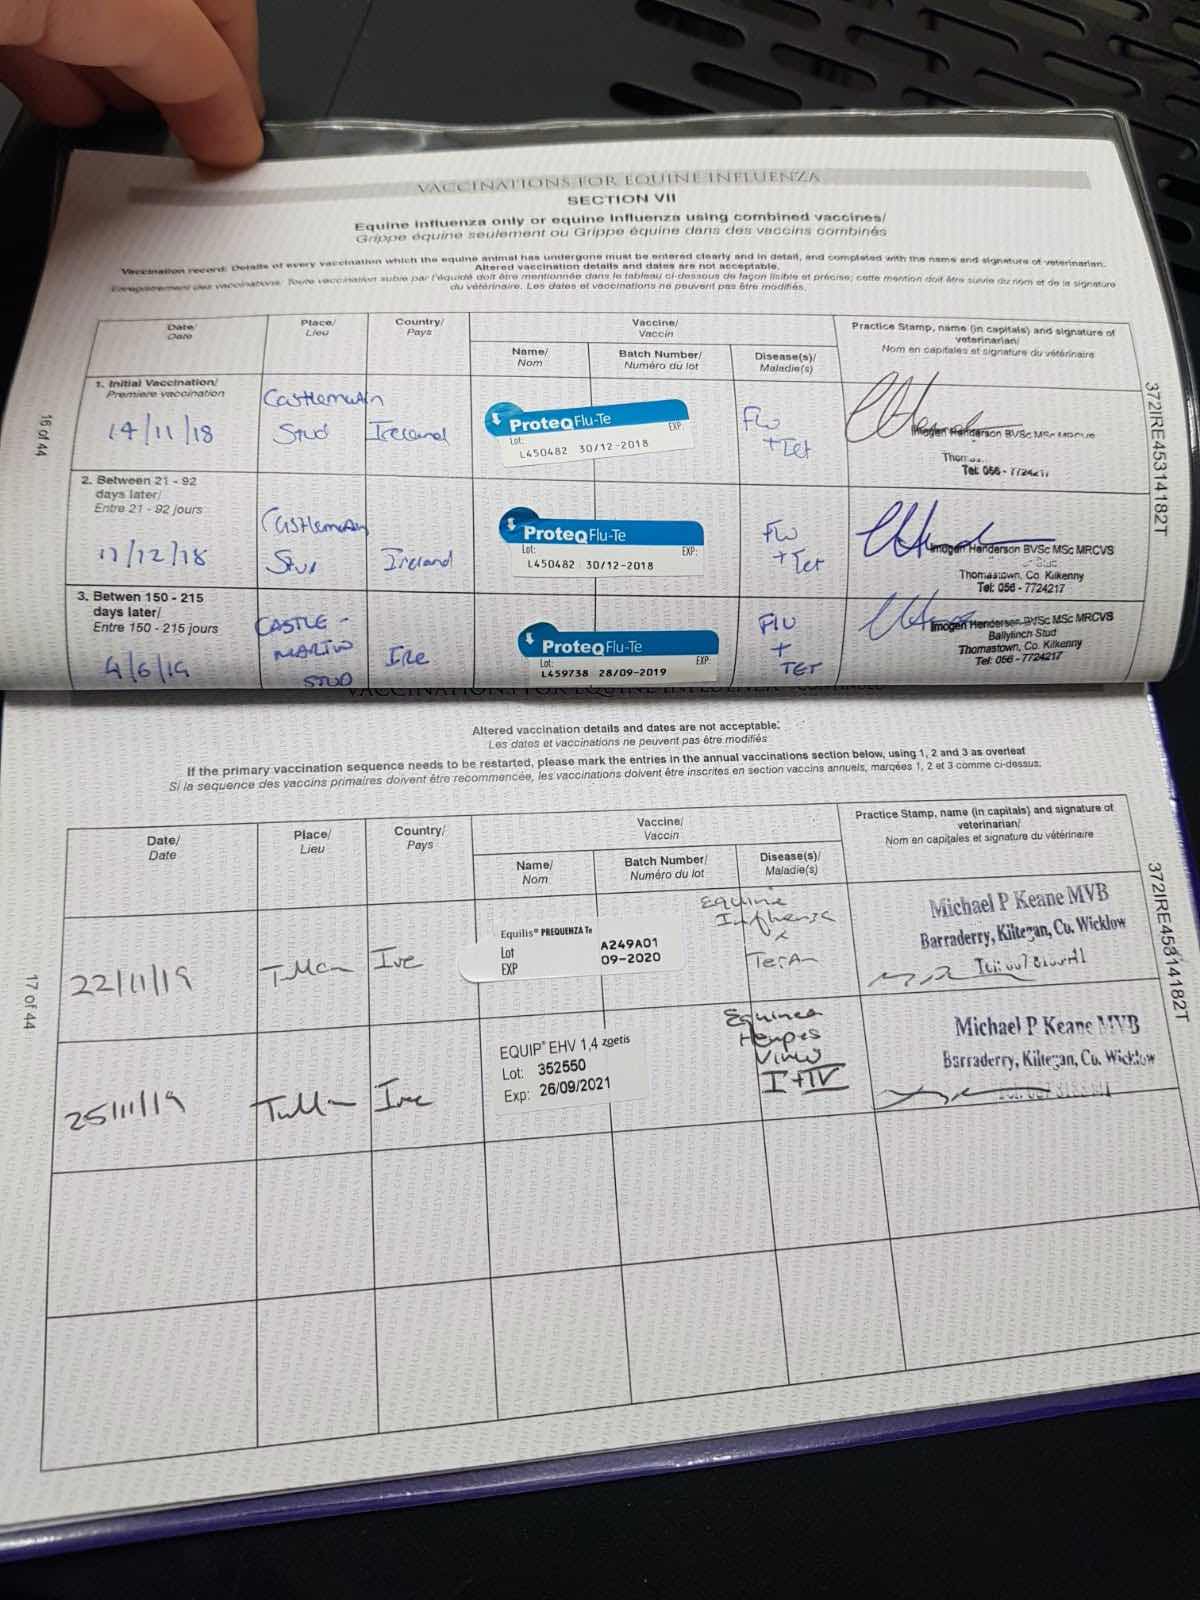 VACCINATIONS FOR EQUINE INFLUENZA
SECTION VII
Equine influenza only or equine Influenza using combined vaccines/
Grippe équine seulement ou Grippe équine dans des vaccins combinés
Vaccination record: Details of every vaccination which the equine animal has undergone must be entered clearly and in detail, and completed with the name and signature of veterinarian.
Altered vaccination details and dates are not acceptable.
Enregistrement des vaccinations: Toute vaccination subie par l'équidé doit être mentionnée dans le tableau ci-dessous de façon lisible et précise; cette mention doit être suivie du nom et de la signature
du vétérinaire. Les dates et vaccinations ne peuvent pas être modifiés.
Date/ Date
Place/ Lieu
Country/ Pays
Vaccine/ Vaccin
Name/ Nom
Batch Number/ Numéro du lot
Disease(s)/ Maladie(s)
Practice Stamp, name (in capitals) and signature of
veterinarian/
Nom en capitales et signature du vétérinaire
1. Initial Vaccination/
Premiere vaccination
14/11/18
Stud
Ireland
ProteqFlu-Te
Lot: EXP:
L450482 30/12-2018
Flu
+Tet
Imogen Henderson BVSc MSc MRCVS
Tel: 056 - 7724217
2. Between 21 - 92
days later/
Entre 21 - 92 jours
11/12/18
Stud
Ireland
ProteqFlu-Te
Lot: EXP:
L450482 30/12-2018
Flu
+Tet
Imogen Henderson BVSc MSc MRCVS
Thomastown, Co. Kilkenny
Tel: 056 - 7724217
3. Betwen 150 - 215
days later/
Entre 150 - 215 jours
4/6/19
CASTLE -
MARTIN
STUD
Ire
ProteqFlu-Te
Lot: EXP:
L459738 28/09-2019
Flu
+
TET
Imogen Henderson BVSc MSc MRCVS
Ballylinch Stud
Thomastown, Co. Kilkenny
Tel: 056 - 7724217
16 of 44
372IRE45314182T
VACCINATIONS FOR EQUINE INFLUENZA - CONTINUED
Altered vaccination details and dates are not acceptable.
Les dates et vaccinations ne peuvent pas être modifiés
If the primary vaccination sequence needs to be restarted, please mark the entries in the annual vaccinations section below, using 1, 2 and 3 as overleaf
Si la sequence des vaccins primaires doivent être recommencée, les vaccinations doivent être inscrites en section vaccins annuels, marqées 1, 2 et 3 comme ci-dessus.
Date/ Date
Place/ Lieu
Country/ Pays
Vaccine/ Vaccin
Name/ Nom
Batch Number/ Numéro du lot
Disease(s)/ Maladie(s)
Practice Stamp, name (in capitals) and signature of
veterinarian/
Nom en capitales et signature du vétérinaire
22/11/19
Ire
Equilis® PREQUENZA Te
Lot A249A01
EXP 09-2020
Equine
Influenza
Michael P Keane MVB
Barraderry, Kiltegan, Co. Wicklow
25/11/19
Ire
EQUIP® EHV 1,4 zoetis
Lot: 352550
Exp: 26/09/2021
Equine
Herpes
Virus
I + IV
Michael P Keane MVB
Barraderry, Kiltegan, Co. Wicklow
17 of 44
372IRE45314182T